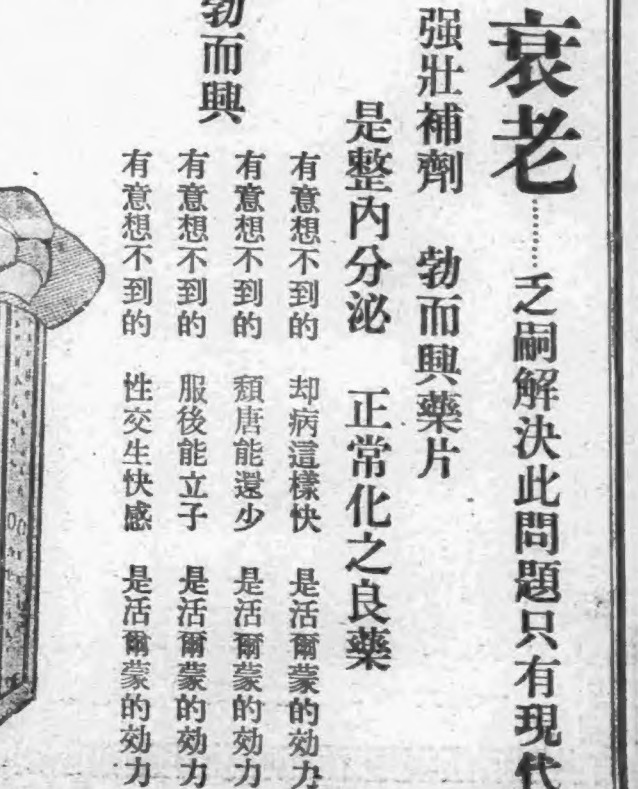 衰老………乏嗣解決此問題只有現代
强壯補劑 勃而興藥片
是整內分泌 正常化之良藥
有意想不到的 却病這樣快 是活爾蒙的効力
有意想不到的 頹唐能還少 是活爾蒙的効力
勃而興
有意想不到的 服後能立子 是活爾蒙的効力
有意想不到的 性交生快感 是活爾蒙的効力